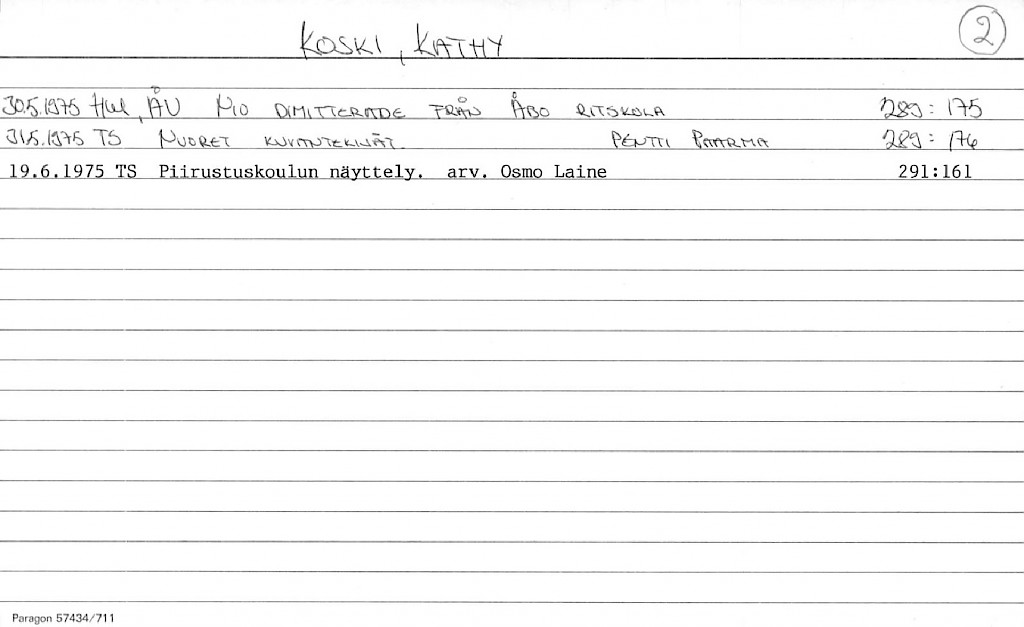 KOSKI, KATHY
2
30.5.1975 ÅU NIO DIMITTERADE FRÅN ÅBO RITSKOLA 289:175
31.5.1975 TS NUORET KUVANTEKIJÄT PENTTI PAARMA 289:176
19.6.1975 TS Piirustuskoulun näyttely. arv. Osmo Laine 291:161
Paragon 57434/711